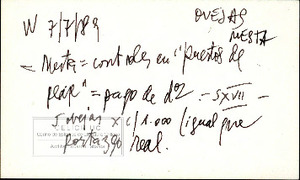 W 7/7/89
OVEJAS
MESTA
- Mesta = controles en "puertos de
pear" = pago de dº - SXVII -
5 ovejas x c/1.000 (igual que
portazgo real.